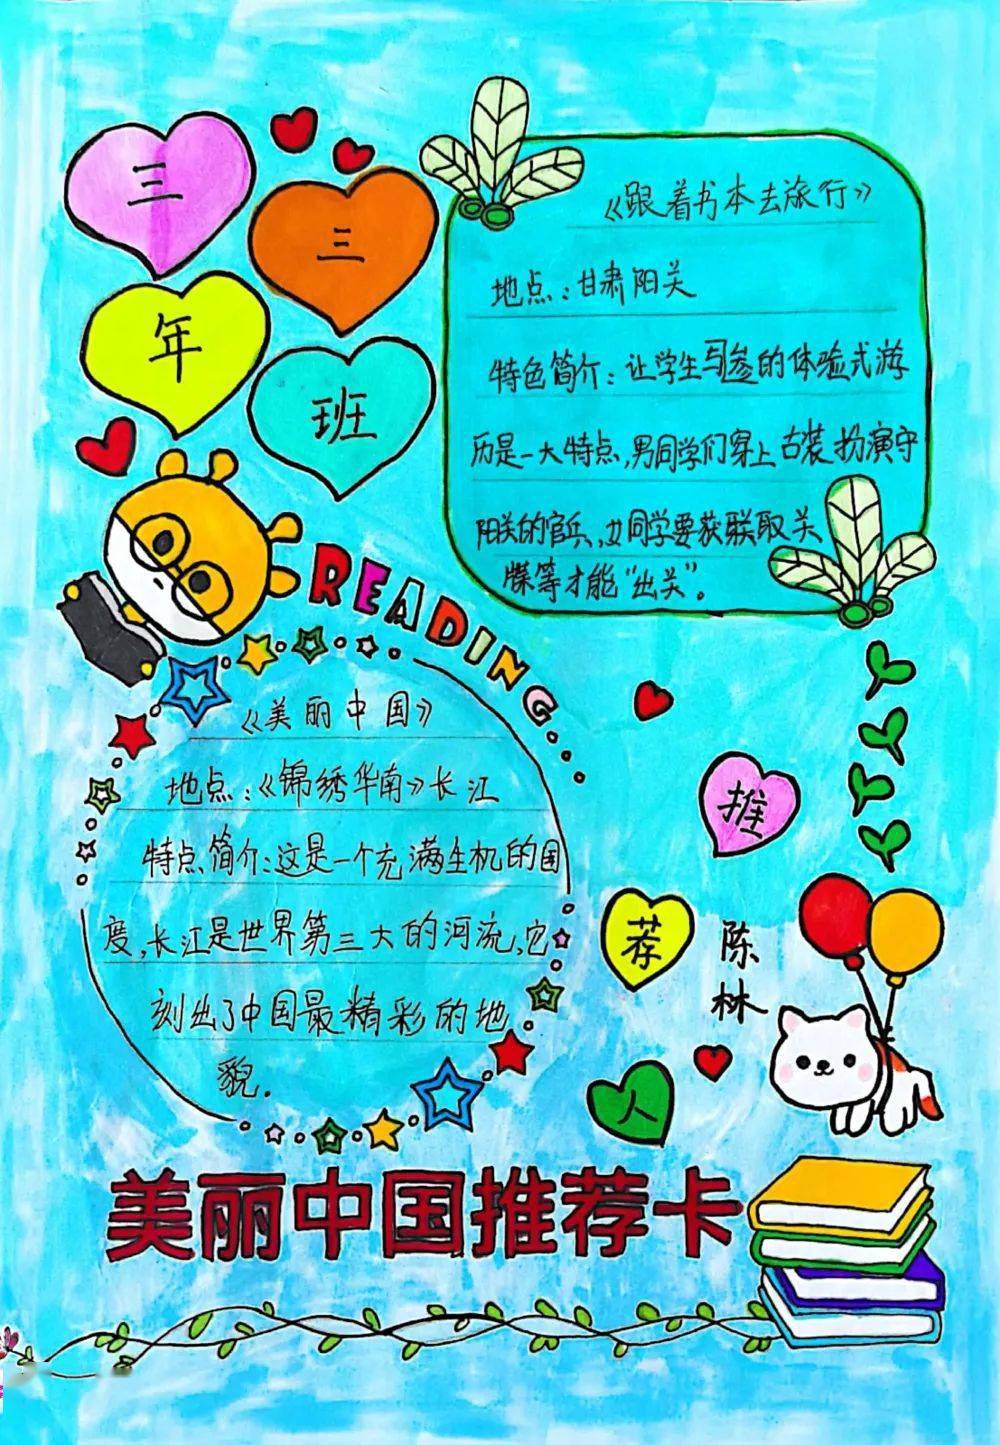 三
三
年
班
《跟着书本去旅行》
地点：甘肃阳关
特色简介：让学生写参的体验式游
历是一大特点，男同学们穿上古装扮演守
阳关的官兵，女同学要获联取关
牒等才能“出关”。
READING
《美丽中国》
地点：《锦绣华南》长江
特点简介：这是一个充满生机的国
度，长江是世界第三大的河流，它
刻出了中国最精彩的地
貌．
推
荐
人
陈
林
美丽中国推荐卡